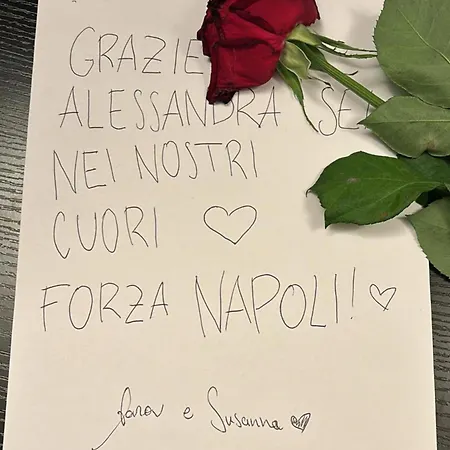 GRAZIE
ALESSANDRA SEI
NEI NOSTRI
CUORI ♡
FORZA NAPOLI! ♡
Sara e Susanna ♡